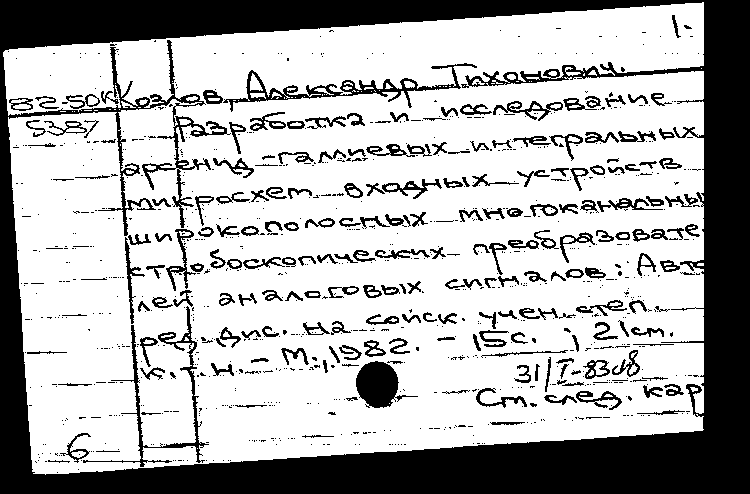 1.
82-50К Козлов, Александр Тихонович.
5387 Разработка и исследование
арсенид-галлиевых интегральных
микросхем входных устройств
широкополосных многоканальны
стробоскопических преобразовате
лей аналоговых сигналов: Авто
реф. дис. на соиск. учен. степ.
к.т.н. - М., 1982. - 15с. ; 21см.
31/I-83
См. след. кар
6